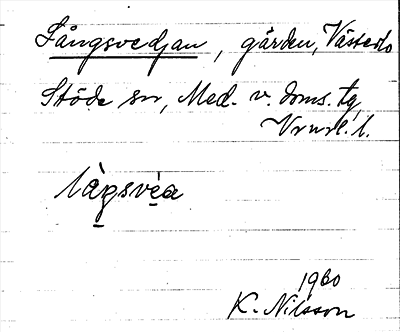 Långsvedjan, gården, Västerlo
Stöde sn, Med. v. doms. tg,
Vrnrl. l.
làgsvèa
1960
K. Nilsson